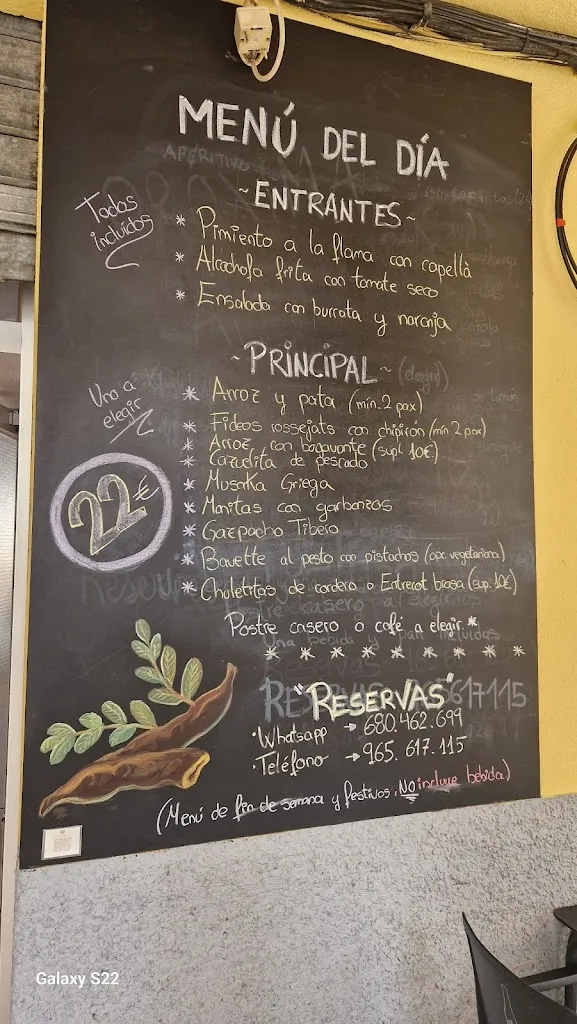 MENÚ DEL DÍA
APERITIVO
~ENTRANTES~
Todos
incluidos
* Pimiento a la flama con capellà
* Alcachofa frita con tomate seco
* Ensalada con burrata y naranja
~PRINCIPAL~ (elegir)
Uno a
elegir
* Arroz y pata (mín. 2 pax)
* Fideos rossejats con chipirón (mín 2 pax)
* Arroz con bogavante (supl. 10€)
* Cazuelita de pescado
* Musaka Griega
* Manitas con garbanzos
* Gazpacho Tibero
* Bavette al pesto con pistachos (opc. vegetariana)
* Chuletitas de cordero o Entrecot brasa (sup. 10€)
22€
Postre casero o café a elegir *
* * * * * * * * *
"RESERVAS"
· Whatsapp → 680.462.699
· Teléfono → 965.617.115
(Menú de fin de semana y festivos, NO incluye bebida)
Galaxy S22